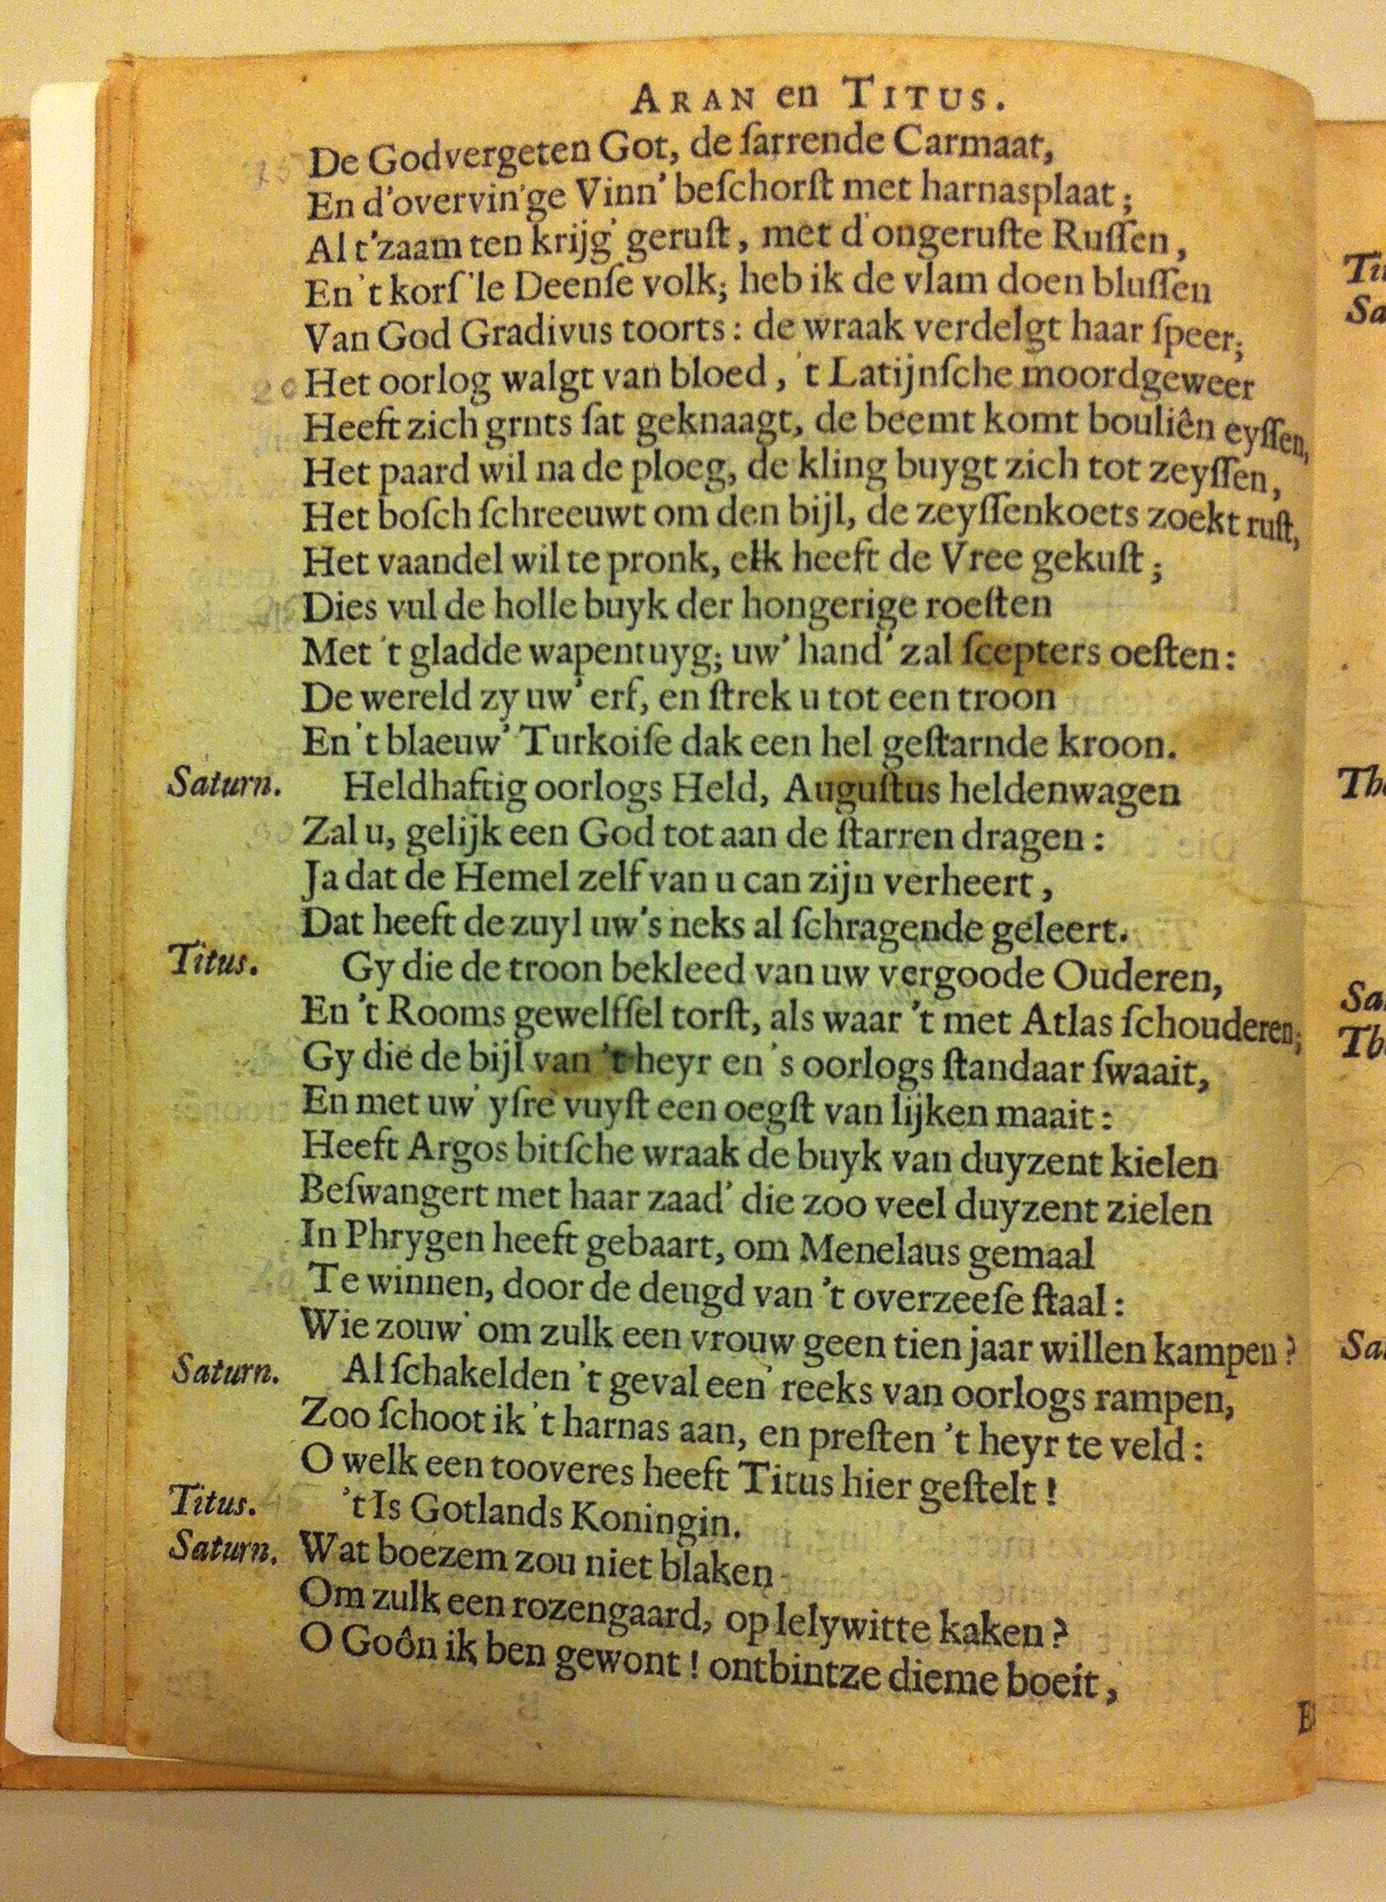 ARAN en TITUS.
De Godvergeten Got, de ſarrende Carmaat,
En d'overvin'ge Vinn' beſchorſt met harnasplaat;
Al t'zaam ten krijg' geruſt, met d'ongeruſte Ruſſen,
En 't korſ'le Deenſe volk; heb ik de vlam doen bluſſen
Van God Gradivus toorts: de wraak verdelgt haar ſpeer;
20 Het oorlog walgt van bloed, 't Latijnſche moordgeweer
Heeft zich grnts ſat geknaagt, de beemt komt bouliên eyſſen,
Het paard wil na de ploeg, de kling buygt zich tot zeyſſen,
Het boſch ſchreeuwt om den bijl, de zeyſſenkoets zoekt ruſt,
Het vaandel wil te pronk, elk heeft de Vree gekuſt;
Dies vul de holle buyk der hongerige roeſten
Met 't gladde wapentuyg; uw' hand' zal ſcepters oeſten:
De wereld zy uw' erf, en ſtrek u tot een troon
En 't blaeuw' Turkoiſe dak een hel geſtarnde kroon.
Saturn. Heldhaftig oorlogs Held, Auguſtus heldenwagen
Zal u, gelijk een God tot aan de ſtarren dragen:
Ja dat de Hemel zelf van u can zijn verheert,
Dat heeft de zuyl uw's neks al ſchragende geleert.
Titus. Gy die de troon bekleed van uw vergoode Ouderen,
En 't Rooms gewelfſel torſt, als waar 't met Atlas ſchouderen;
Gy die de bijl van 't heyr en 's oorlogs ſtandaar ſwaait,
En met uw' yſre vuyſt een oegſt van lijken maait:
Heeft Argos bitſche wraak de buyk van duyzent kielen
Beſwangert met haar zaad' die zoo veel duyzent zielen
In Phrygen heeft gebaart, om Menelaus gemaal
Te winnen, door de deugd van 't overzeeſe ſtaal:
Wie zouw' om zulk een vrouw geen tien jaar willen kampen?
Saturn. Al ſchakelden 't geval een' reeks van oorlogs rampen,
Zoo ſchoot ik 't harnas aan, en preſten 't heyr te veld:
O welk een tooveres heeft Titus hier geſtelt!
Titus. 't Is Gotlands Koningin.
Saturn. Wat boezem zou niet blaken
Om zulk een rozengaard, op lelywitte kaken?
O Goôn ik ben gewont! ontbintze dieme boeit,